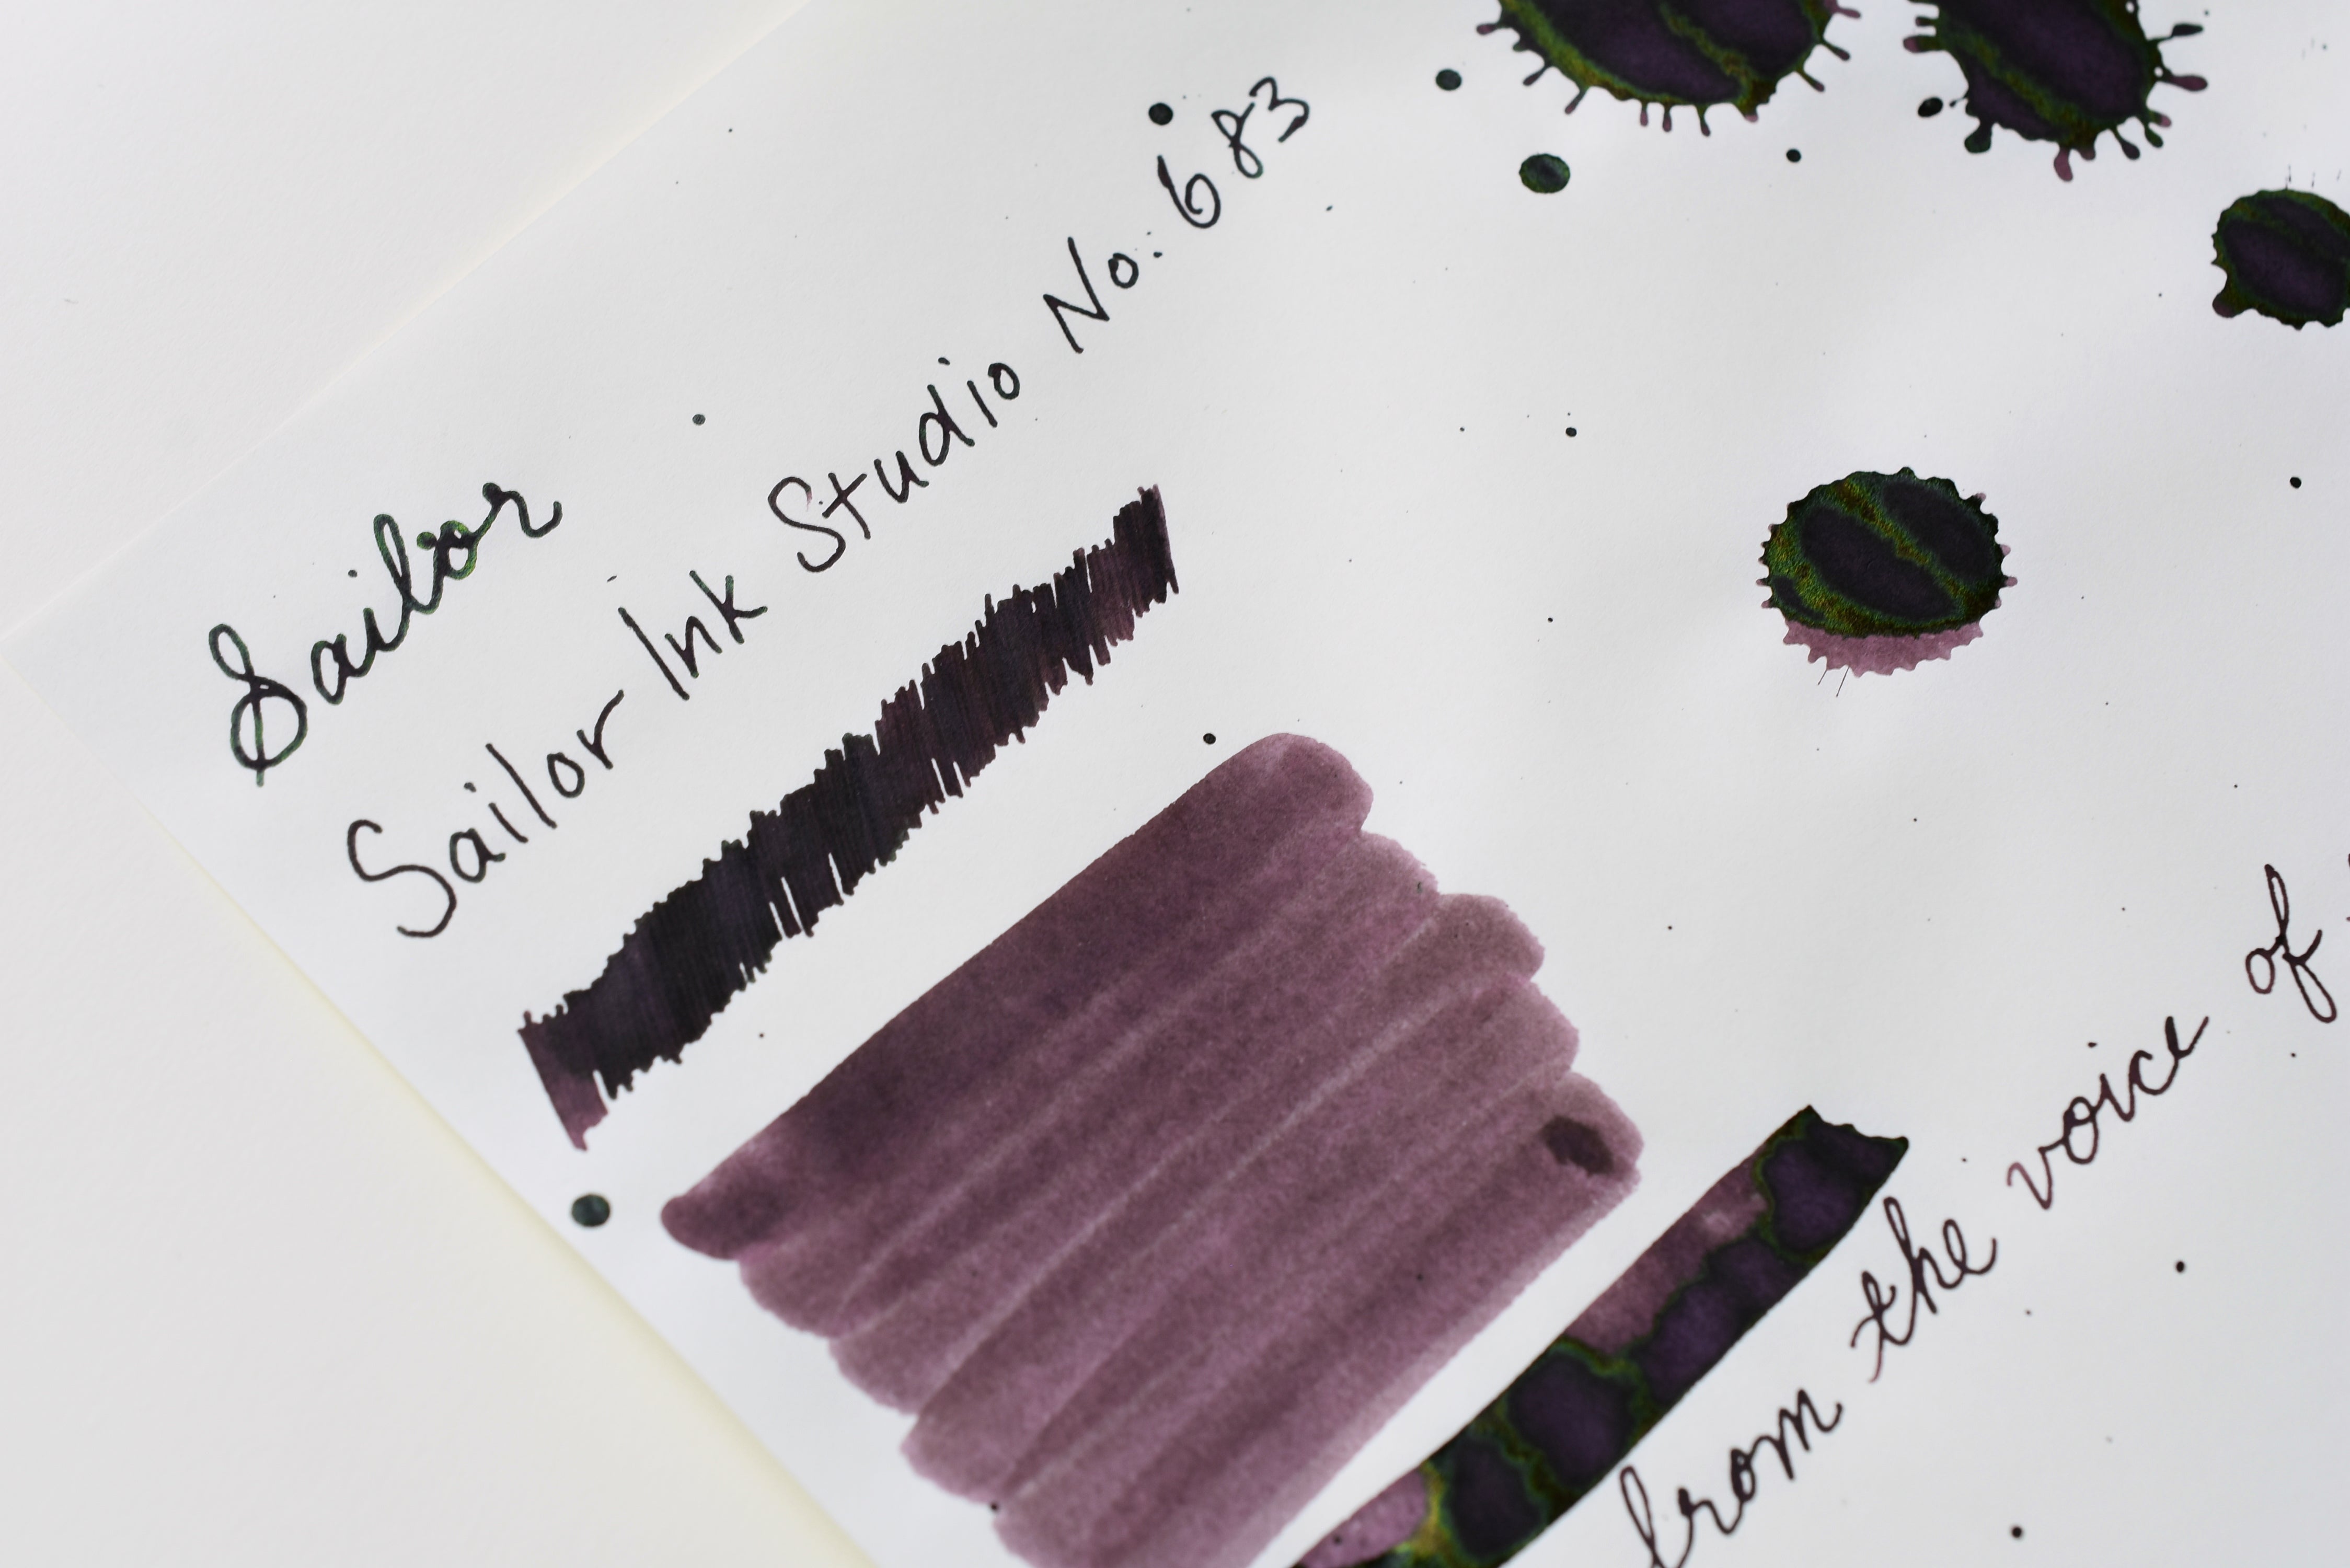 Sailor
Sailor Ink Studio No. 683
from the voice of